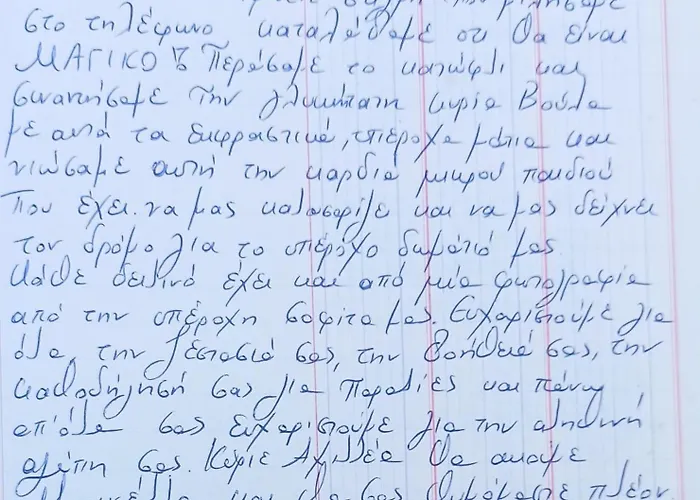 στο τηλέφωνο καταλάβαμε οτι θα είναι
ΜΑΓΙΚΟ Περάσαμε το κατώφλι και
συναντήσαμε την γλυκύτατη κυρία Βούλα
με αυτά τα εκφραστικά, υπέροχα μάτια και
νιώσαμε αυτή την καρδιά μικρού παιδιού
που έχει να μας καλωσορίζει και να μας δείχνει
τον δρόμο για το υπέροχο δωμάτιό μας.
Κάθε δειλινό έχει και από μία φωτογραφία
από την υπέροχη σοφίτα μας. Ευχαριστούμε για
όλα, την ζεστασιά σας, την βοήθειά σας, την
καθοδήγησή σας για παραλίες και πάνω
απ'όλα σας ευχαριστούμε για την αληθινή
αγάπη σας. Κύριε Αχιλλέα θα ακούμε
και θα σας θυμόμαστε πλέον